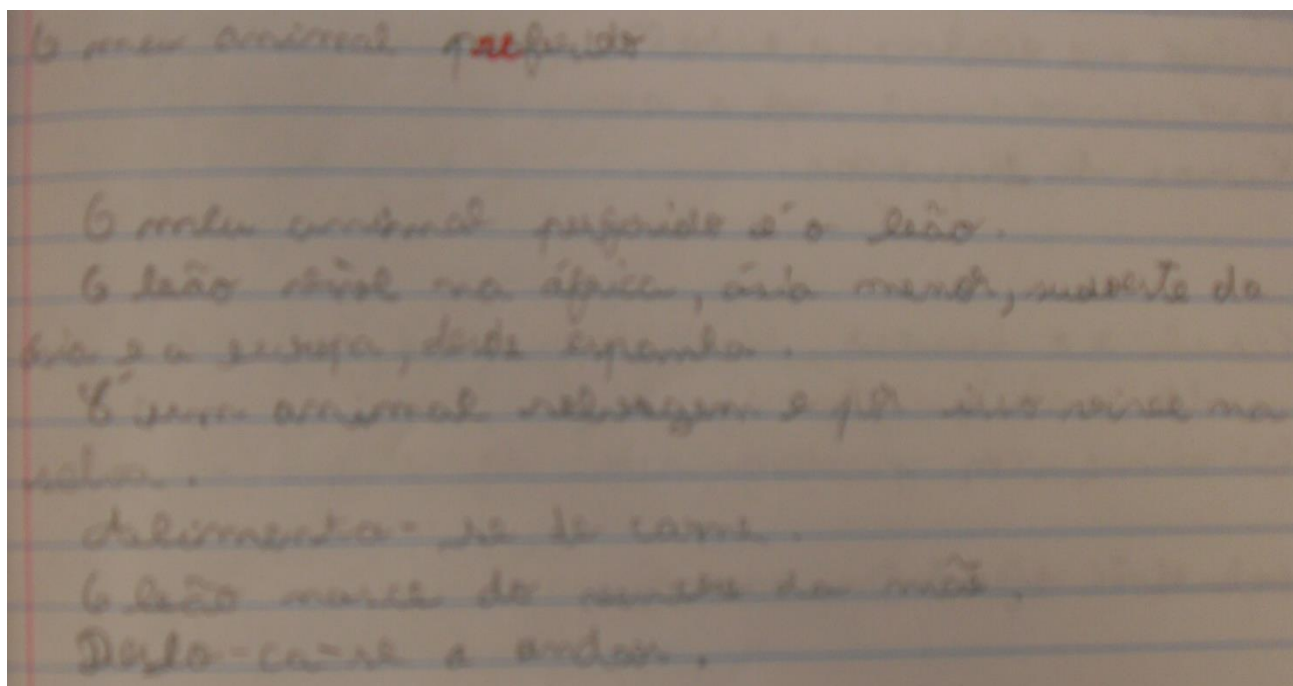 O meu animal preferido
O meu animal perferido é o leão.
O leão vive na áfrica, ásia menor, sudoeste da
ásia e a europa, desde espanha.
É um animal selvagem e por isso vive na
selva.
Alimenta-se de carne.
O leão nasce do ventre da mãe.
Deslo-ca-se a andar.